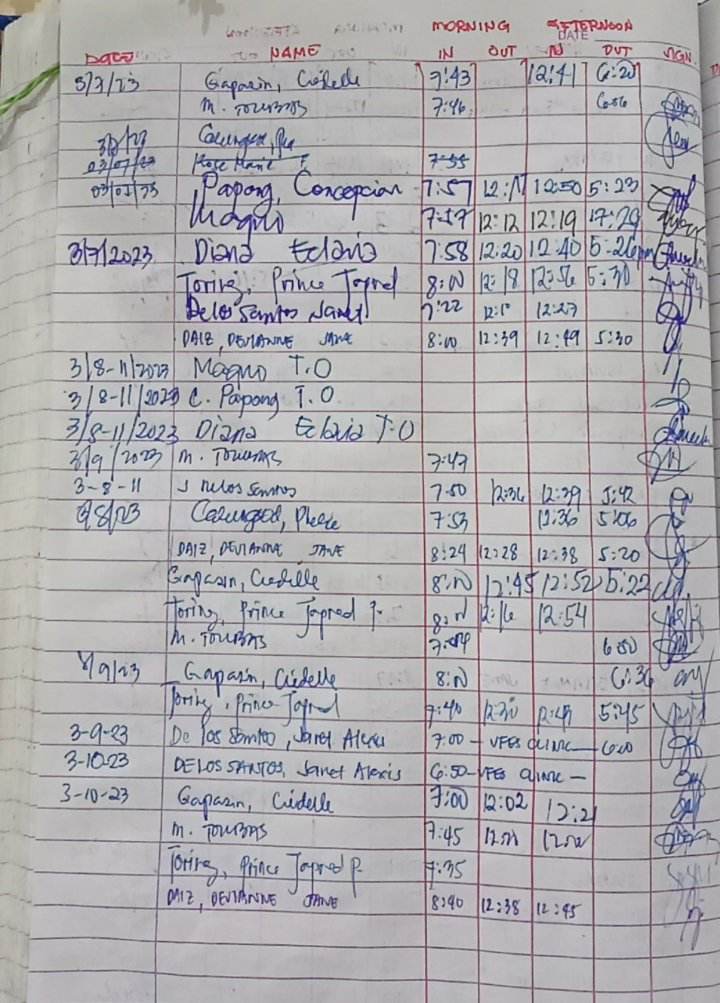 MORNING AFTERNOON
DATE
DATE NAME IN OUT IN OUT SIGN.
3/7/23 Gapasin, Ciedelle 7:43 12:41 6:20
M. TOURBAS 7:46 6:06
3/7/23
03/07/23 Rose Marie F. 7:55
03/07/23 Papong, Concepcion 7:57 12:11 12:50 5:23
Magno 7:57 12:12 12:19 17:29
3/7/2023 Diana Eclavia 7:58 12:20 12:40 5:26pm
Toring, Prince Japred 8:00 12:18 12:56 5:30
Delos Santos Janet 7:22 12:27
DAIZ, DEVIANNE JANE 8:00 12:39 12:49 5:30
3/8-11/2023 Magno T.O
3/8-11/2023 C. Papong T.O
3/8-11/2023 Diana Eclavia T.O
3/9/2023 M. TOURBAS 7:47
3-8-11 J Delos Santos 7:50 12:36 12:39 5:42
3/8/23 7:53 12:36 5:06
DAIZ, DEVIANNE JANE 8:24 12:28 12:38 5:20
Gapasin, Ciedelle 8:00 12:45 12:52 5:22
Toring, Prince Japred P. 8:00 12:16 12:54
M. TOURBAS 7:54 6:00
3/9/23 Gapasin, Ciedelle 8:00 6:36
Toring, Prince Japred 7:40 12:30 12:49 5:45
3-9-23 De los Santos, Janet Alexis 7:00 - VFBS CLINIC - 6:00
3-10-23 DELOS SANTOS, Janet Alexis 6:50 - VFBS CLINIC -
3-10-23 Gapasin, Ciedelle 7:00 12:02 12:21
M. TOURBAS 7:45
Toring, Prince Japred P. 7:35
DAIZ, DEVIANNE JANE 8:40 12:38 12:45